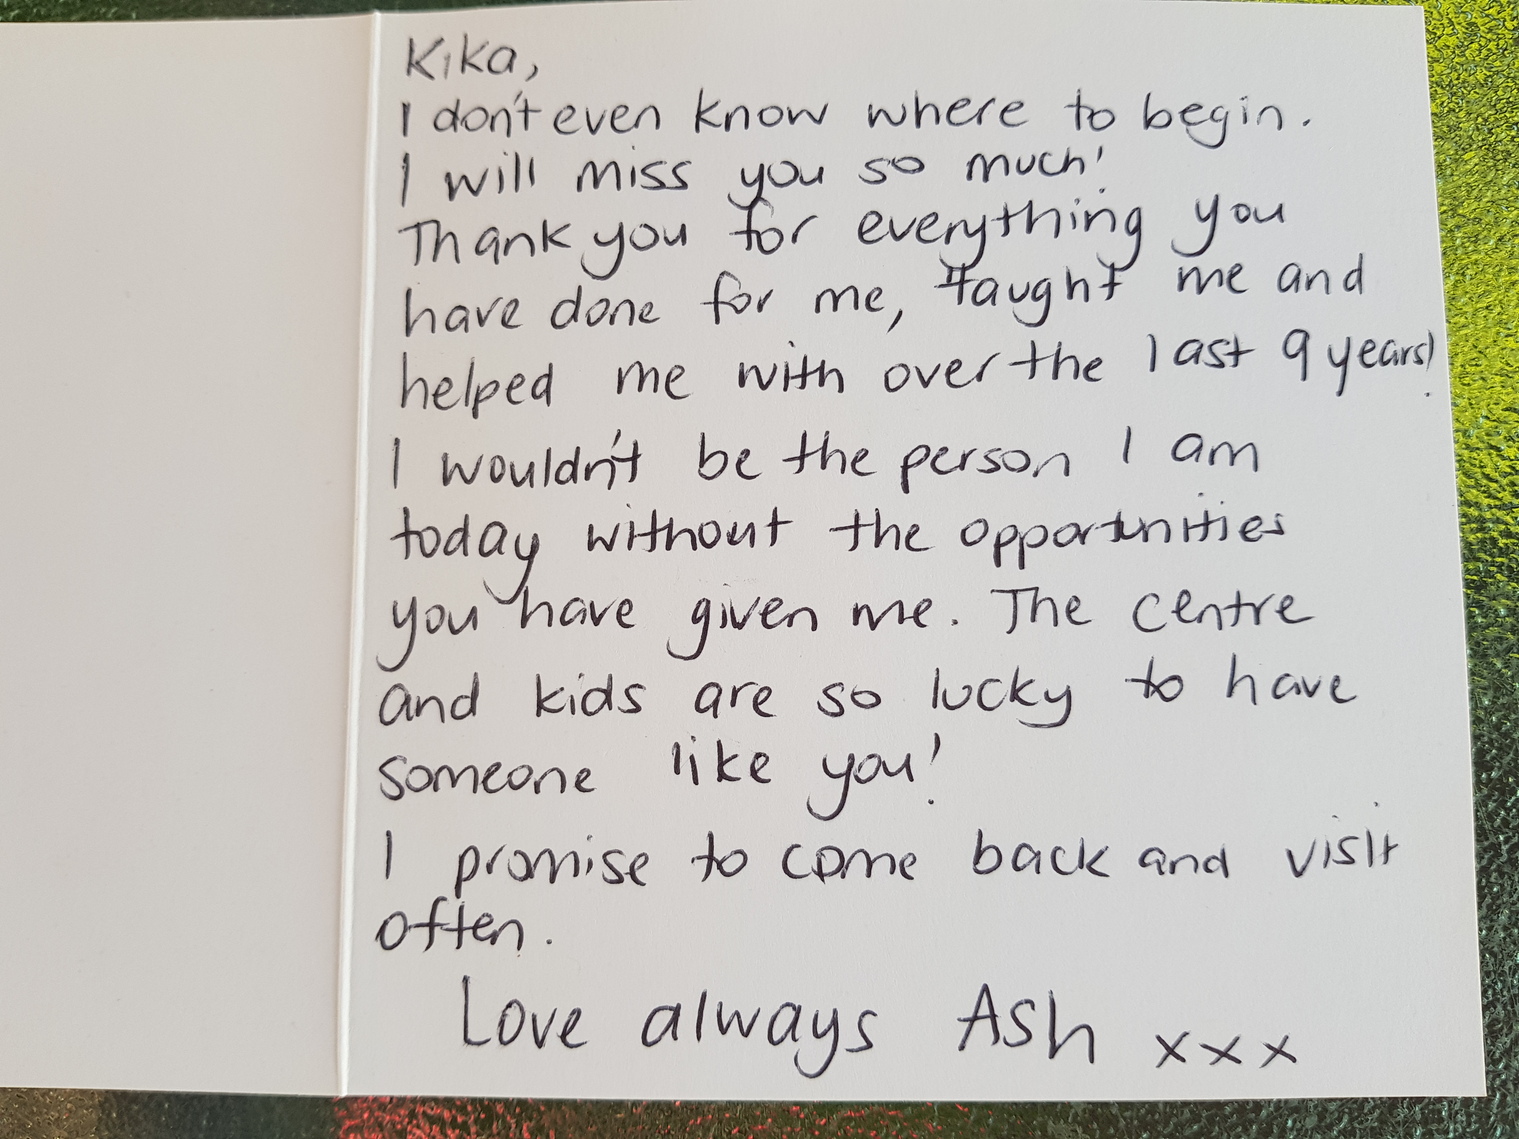 Kika,
I don't even know where to begin.
I will miss you so much!
Thank you for everything you
have done for me, taught me and
helped me with over the last 9 years!
I wouldn't be the person I am
today without the opportunities
you have given me. The centre
and kids are so lucky to have
someone like you!
I promise to come back and visit
often.
Love always Ash xxx